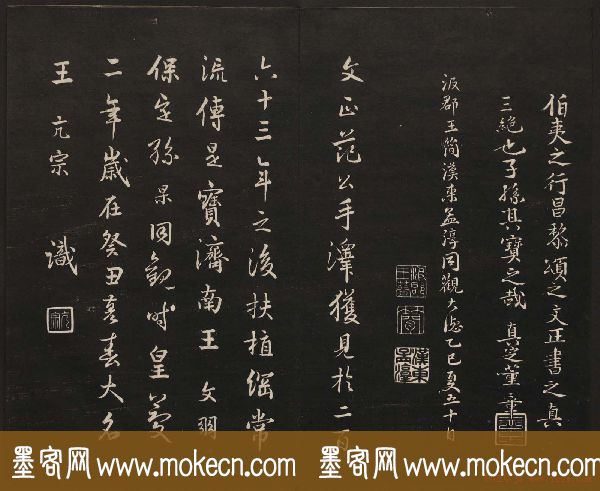 伯夷之行昌黎頌之文正書之真
三絶也子孫其寶之哉 真定董章
汲郡王簡漢東孟淳同觀大德乙巳夏五十日
文正范公手澤獲見於二百
六十三年之後扶植綱常
流傳是寶濟南王 文明
保定孫 杲同觀時皇慶
二年歲在癸丑孟春大名
王 亢宗 識
漢東
孟淳
墨客网 www.mokecn.com 墨客网 www.mokecn.com